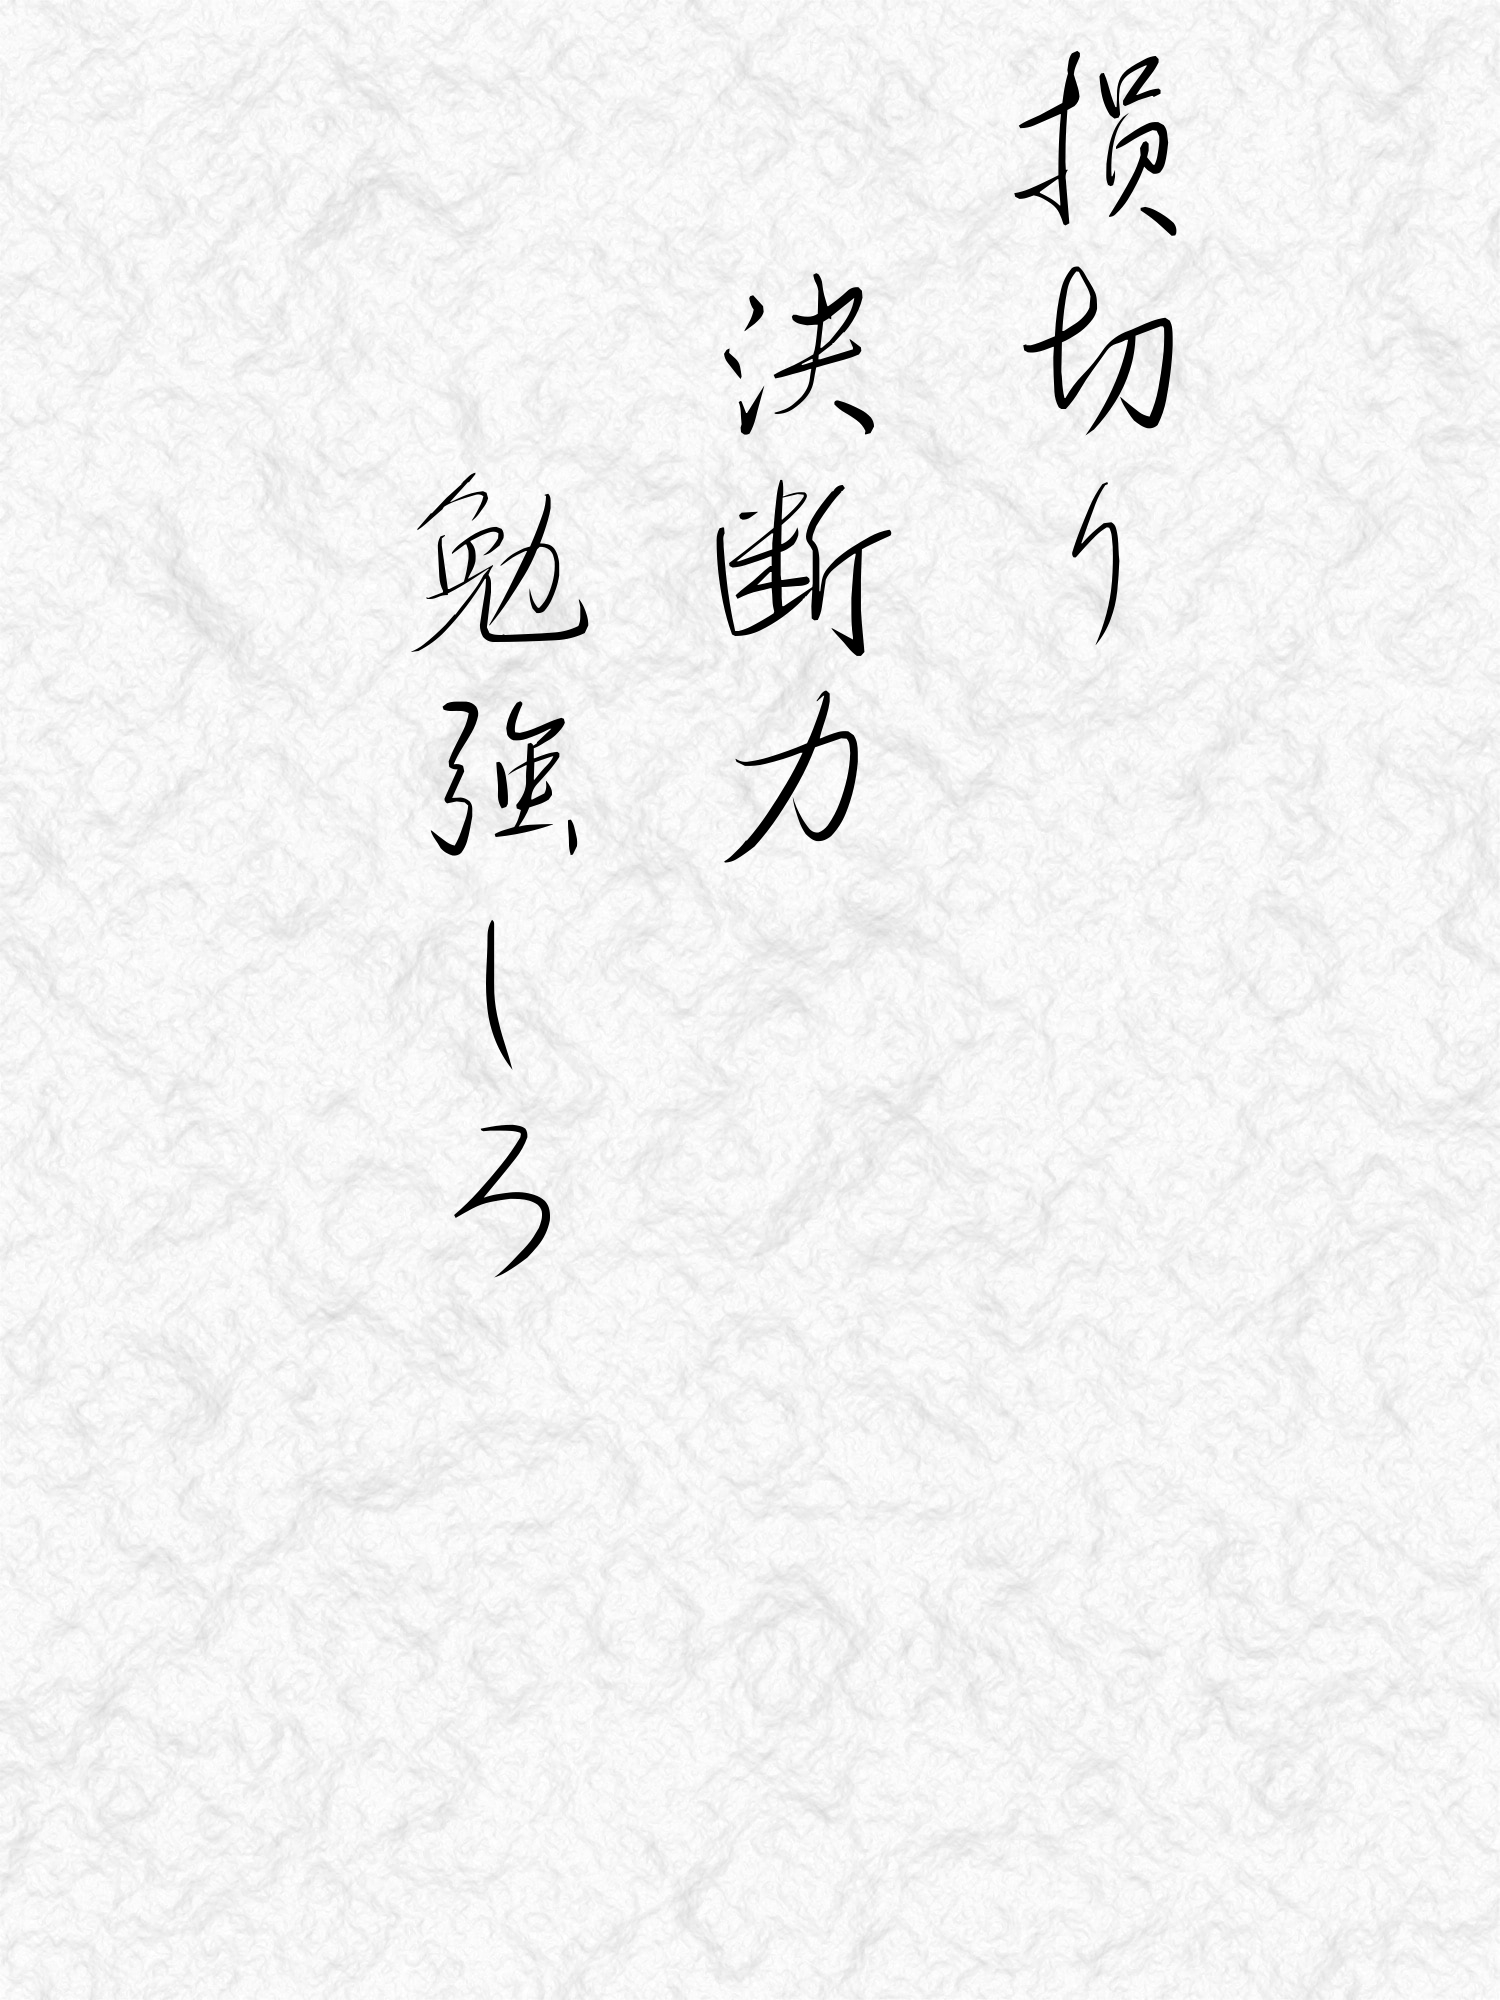 損切り
決断力
勉強しろ